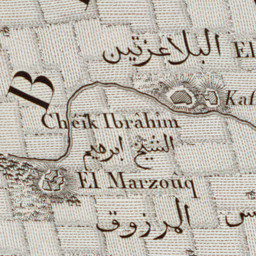 البلاعزتين El
B
Kaf
Cheik Ibrâhim
الشيخ ابرهيم
El Marzouq
المرزوق